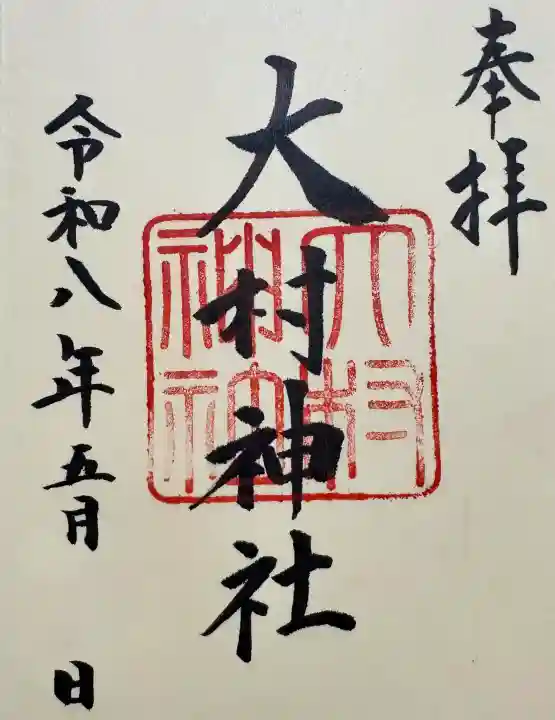 奉拝
大村神社
大村
神社
令和八年五月 日